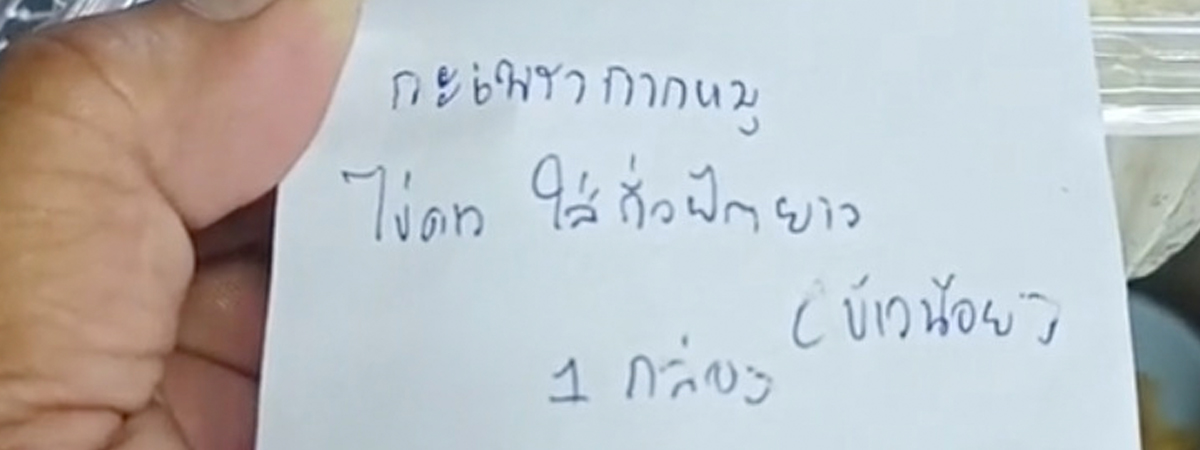 กะเพรากากหมู
ไข่ดาว ใส่ถั่วฝักยาว
(ข้าวน้อย)
1 กล่อง